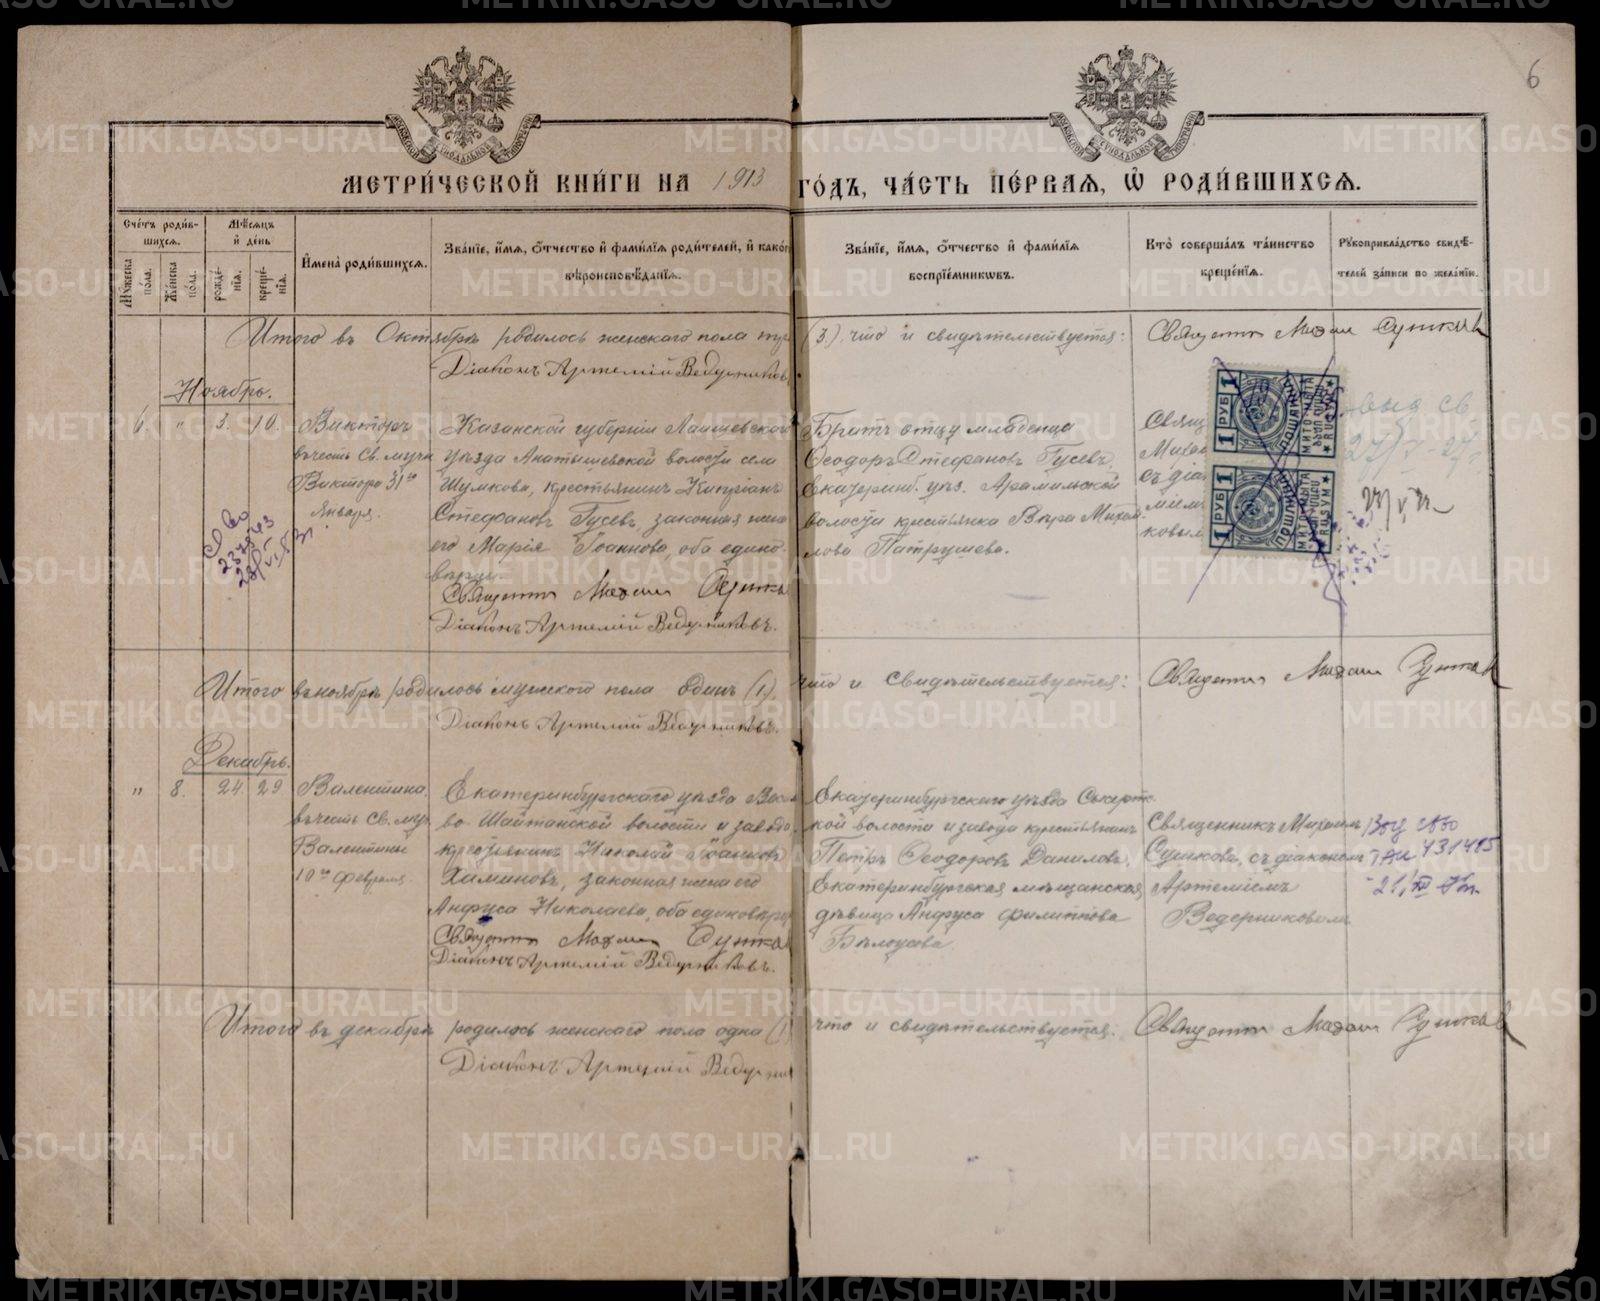 6
МЕТРИ́ЧЕСКОЙ КНИ́ГИ НА 1913 ГО́ДЪ, ЧА́СТЬ ПЕ́РВАЯ, Ѡ҆ РОДИ́ВШИХСЯ.
Сче́тъ роди́в-
шихся.
Му́жеска по́ла.
Же́нска по́ла.
Мѣ́сяцъ
и҆ де́нь
рожде́-
нїя.
креще́-
нїя.
И҆мена̀ роди́вшихся.
Зва́нїе, и҆́мя, ѻ҆́тчество и҆ фами́лїя роди́телей, и҆ како́г
вѣроисповѣ́данїя.
Зва́нїе, и҆́мя, ѻ҆́тчество и҆ фами́лїя
воспрїе́мникѡвъ.
Кто̀ соверша́лъ та́инство
креще́нїя.
Рꙋкоприкла́дство свидѣ́-
телей за́писи по жела́нїю.
Итого въ Октябрѣ родилось женскаго пола (3), что и свидѣтельствуется: Священникъ Михаилъ Сушковъ
Діаконъ Артемій Ведерниковъ
Ноябрь.
6. " 3. 10.
Викторъ
въ честь Св. муч.
Виктора 31го
Января.
Казанской губерніи Лаишевскаго
уѣзда Анатышевской волости села
Шумкова, крестьянинъ Кипріанъ
Стефановъ Гусевъ, законная жена
его Марія Іоаннова, оба едино-
вѣрцы.
Священникъ Михаилъ Сушковъ
Діаконъ Артемій Ведерниковъ.
Братъ отцу младенца
Ѳеодоръ Стефановъ Гусевъ,
Екатеринб. уѣз. Арамильской
волости крестьянка Вѣра Михаи-
лова Патрушева.
Свящ
Михаи
съ діа
міемъ
ковым
1 РУБ 1
1 РУБ 1
выд св
Итого въ ноябрѣ родилось мужского пола одинъ (1) что и свидѣтельствуется: Священникъ Михаилъ Сушковъ
Діаконъ Артемій Ведерниковъ.
Декабрь.
" 8. 24 29
Валентина,
въ честь Св. муч.
Валентины
10го февраля.
Екатеринбургскаго уѣзда
во-Шайтанской волости и завода
крестьянинъ Николай Іоанновъ
Химиновъ, законная жена его
Анфуса Николаева, оба единовѣрцы
Священникъ Михаилъ Сушковъ
Діаконъ Артемій Ведерниковъ.
Екатеринбургскаго уѣзда Сысертс-
кой волости и завода крестьянинъ
Петръ Ѳеодоровъ Даниловъ,
Екатеринбургская мѣщанская
дѣвица Анфуса Филиппова
Бѣлоусова.
Священникъ Михаилъ
Сушковъ, съ діакономъ
Артеміемъ
Ведерниковымъ
Итого въ декабрѣ родилось женскаго пола одна (1) что и свидѣтельствуется. Священникъ Михаилъ Сушковъ
Діаконъ Артемій Ведерник
METRIKI.GASO-URAL.RU